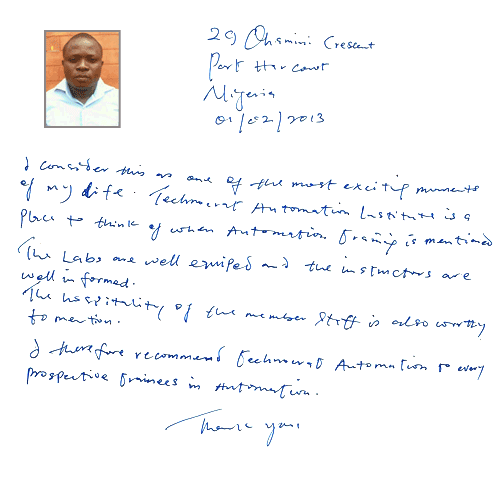 29 Ohamini Crescent
Port Harcourt
Nigeria
01/02/2013
I consider this as one of the most exciting moments
of my life. Technocrat Automation Institute is a
place to think of when Automation training is mentioned
The Labs are well equiped and the instructors are
well informed.
The hospitality of the member staff is also worthy
to mention.
I therefore recommend Technocrat Automation to every
prospective trainees in Automation.
Thank you